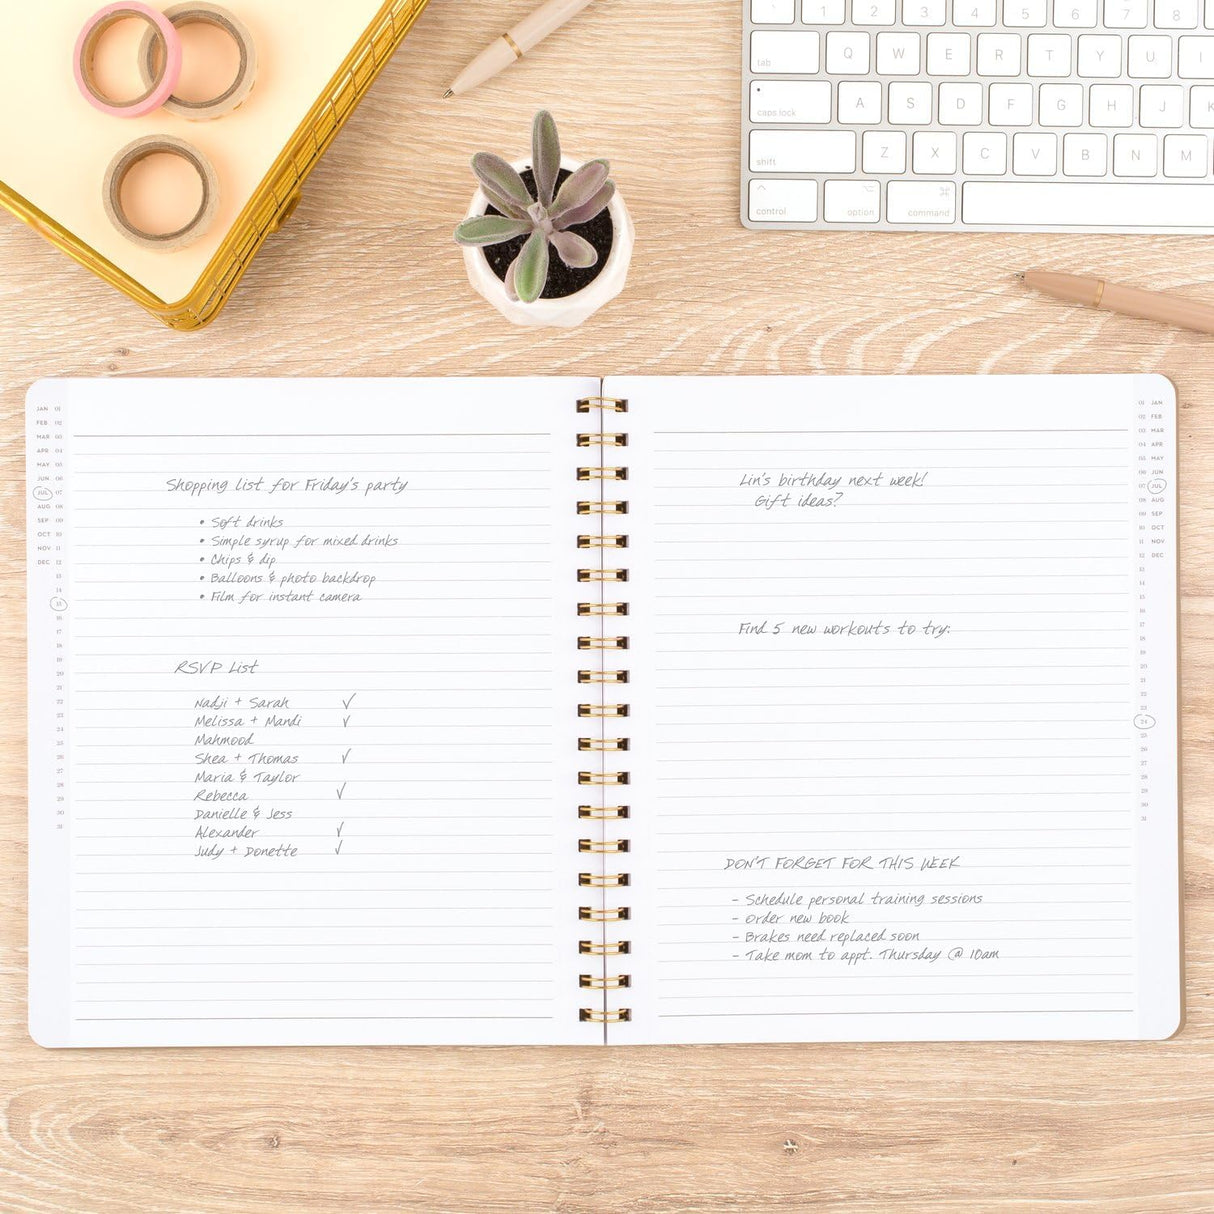 1 2 3 4 5 6 7 8
tab Q W E R T Y U I
caps lock A S D F G H J K
shift Z X C V B N M
control option command
JAN 01
FEB 02
MAR 03
APR 04
MAY 05
JUN 06
JUL 07
AUG 08
SEP 09
OCT 10
NOV 11
DEC 12
13
14
15
16
17
18
19
20
21
22
23
24
25
26
27
28
29
30
31
Shopping list for Friday's party
• Soft drinks
• Simple syrup for mixed drinks
• Chips & dip
• Balloons & photo backdrop
• Film for instant camera
RSVP List
Nadji + Sarah ✓
Melissa + Mandi ✓
Mahmood
Shea + Thomas ✓
Maria & Taylor
Rebecca ✓
Danielle & Jess
Alexander ✓
Judy + Donette ✓
Lin's birthday next week!
Gift ideas?
Find 5 new workouts to try:
DON'T FORGET FOR THIS WEEK
- Schedule personal training sessions
- Order new book
- Brakes need replaced soon
- Take mom to appt. Thursday @ 10am
01 JAN
02 FEB
03 MAR
04 APR
05 MAY
06 JUN
07 JUL
08 AUG
09 SEP
10 OCT
11 NOV
12 DEC
13
14
15
16
17
18
19
20
21
22
23
24
25
26
27
28
29
30
31